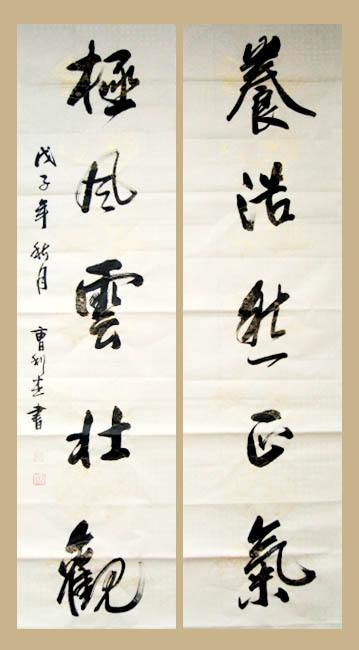 養浩然正氣
極風雲壯觀
戊子年秋月 曹利生書